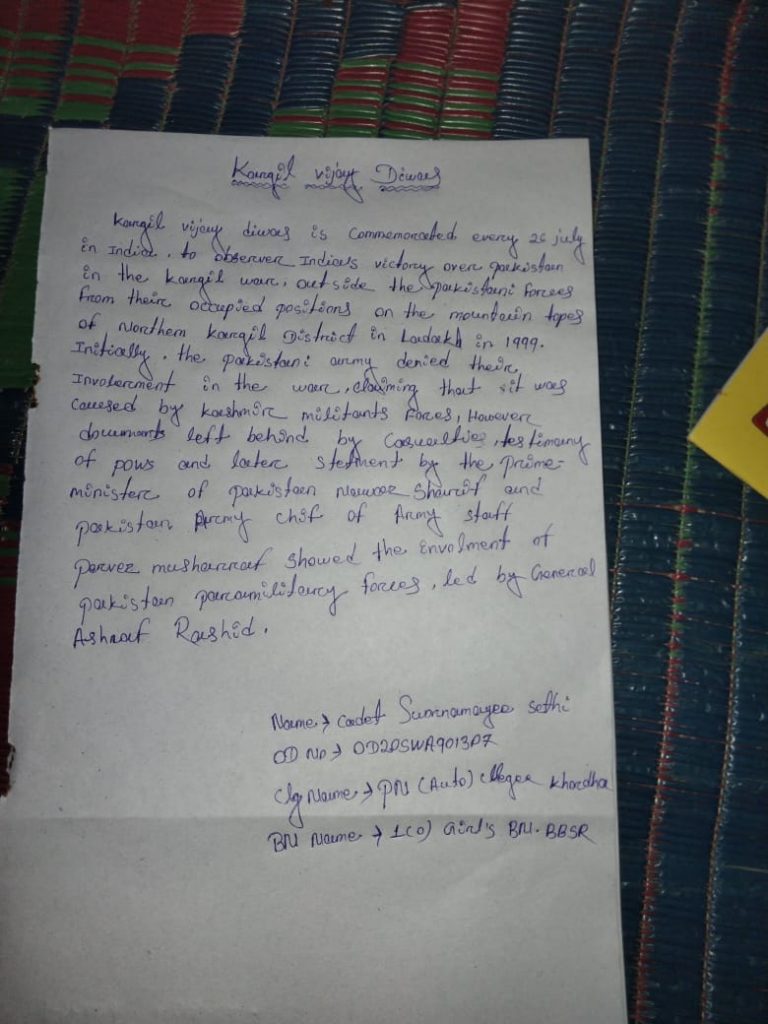 Kargil vijay Diwas
Kargil vijay diwas is commemorated every 26 july
in India, to observer India's victory over pakistan
in the kargil war, outside the pakistani forces
from their occupied positions on the mountain topes
of Northern Kargil District in Ladakh in 1999.
Initially, the pakistani army denied their
Involerment in the war, claiming that it was
caused by kashmir militants forces, However
documents left behind by casualties, testimony
of pows and later stetment by the prime-
minister of pakistan Nawaz Sharif and
pakistan Army chif of Army staff
parvez musharraf showed the Envolment of
pakistan paramilitary forces, led by General
Ashraf Rashid.
Name → cadet Swarnamayee sethi
OD No → OD20SWA901307
Clg Name → PN (Auto) college Khordha
BN Name → 1(O) Girl's BN. BBSR